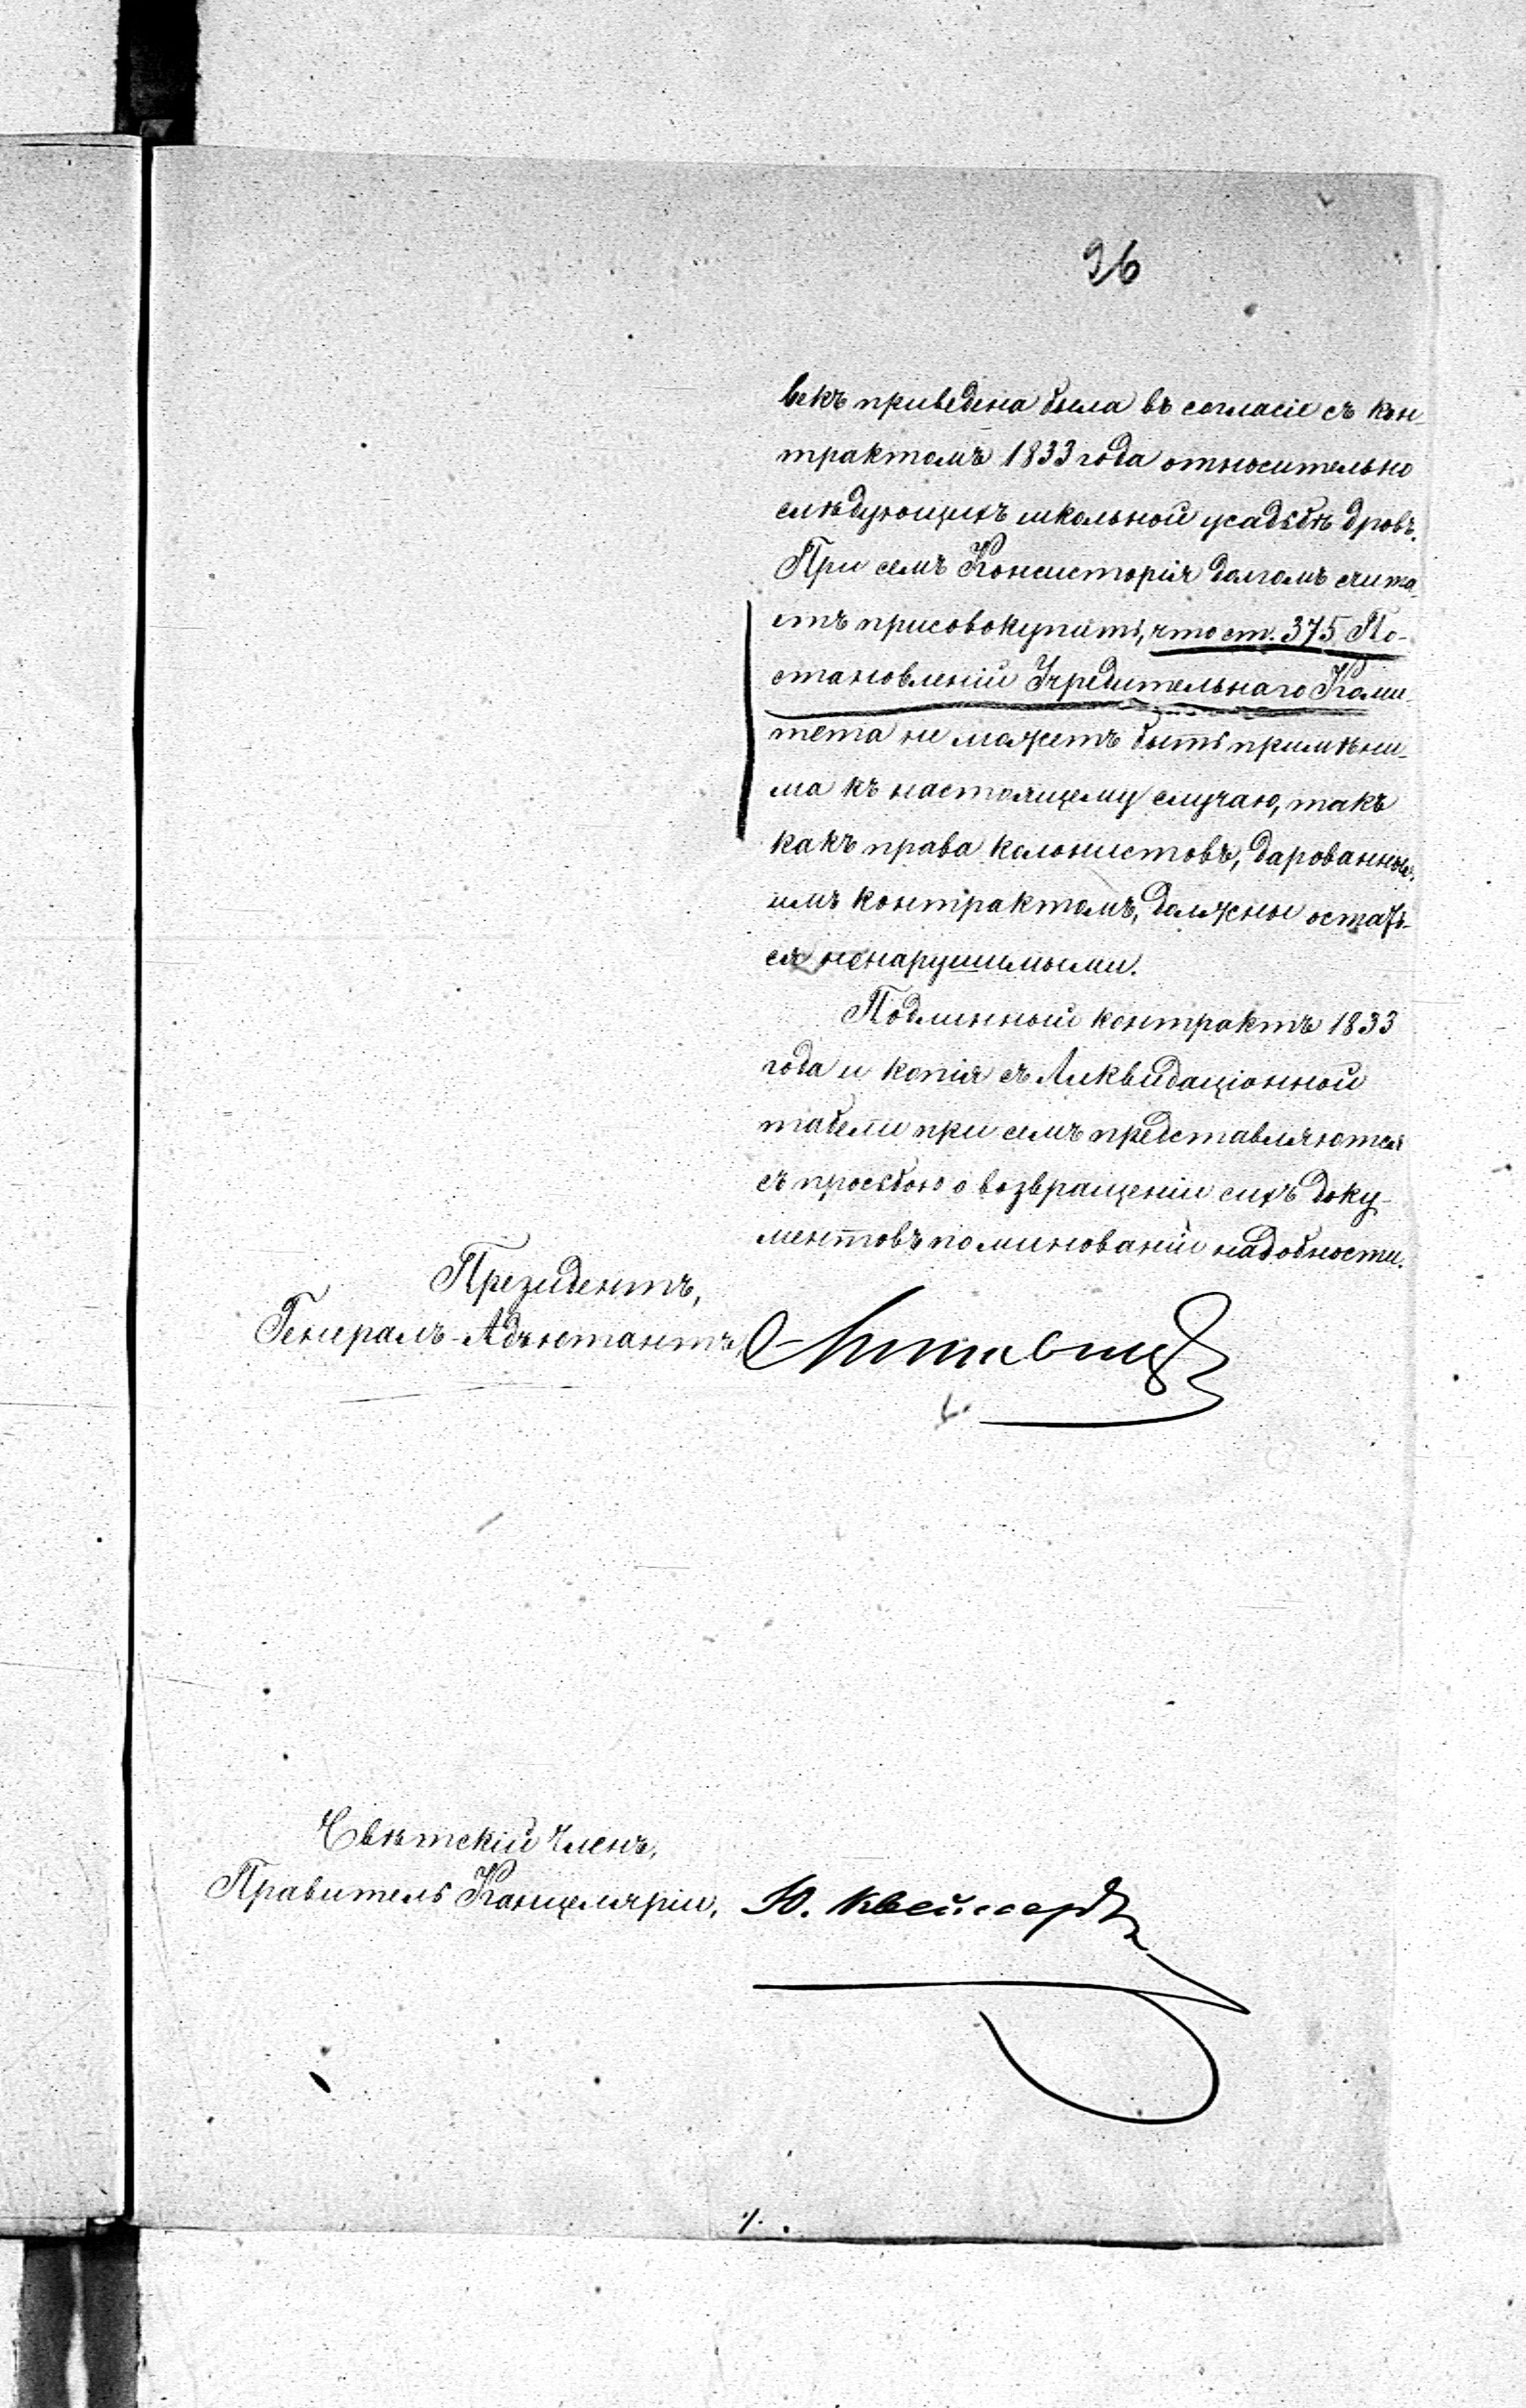 96
векъ приведена была въ согласіе съ кон-
трактомъ 1833 года относительно
слѣдующихъ школьной усадьбѣ дровъ.
При семъ Консисторія долгомъ счита-
етъ присовокупить, что ст. 375 По-
становленій Учредительнаго Коми-
тета не можетъ быть примѣни-
ма къ настоящему случаю, такъ
какъ права колонистовъ, дарованныя
имъ контрактомъ, должны остать-
ся ненарушимыми.
Подлинный контрактъ 1833
года и копія съ Ликвидаціонной
табели при семъ представляются
съ просьбою о возвращеніи сихъ доку-
ментовъ по минованіи надобности.
Президентъ,
Генералъ-Адъютантъ,
Свѣтскій Членъ,
Правитель Канцеляріи, Ю.